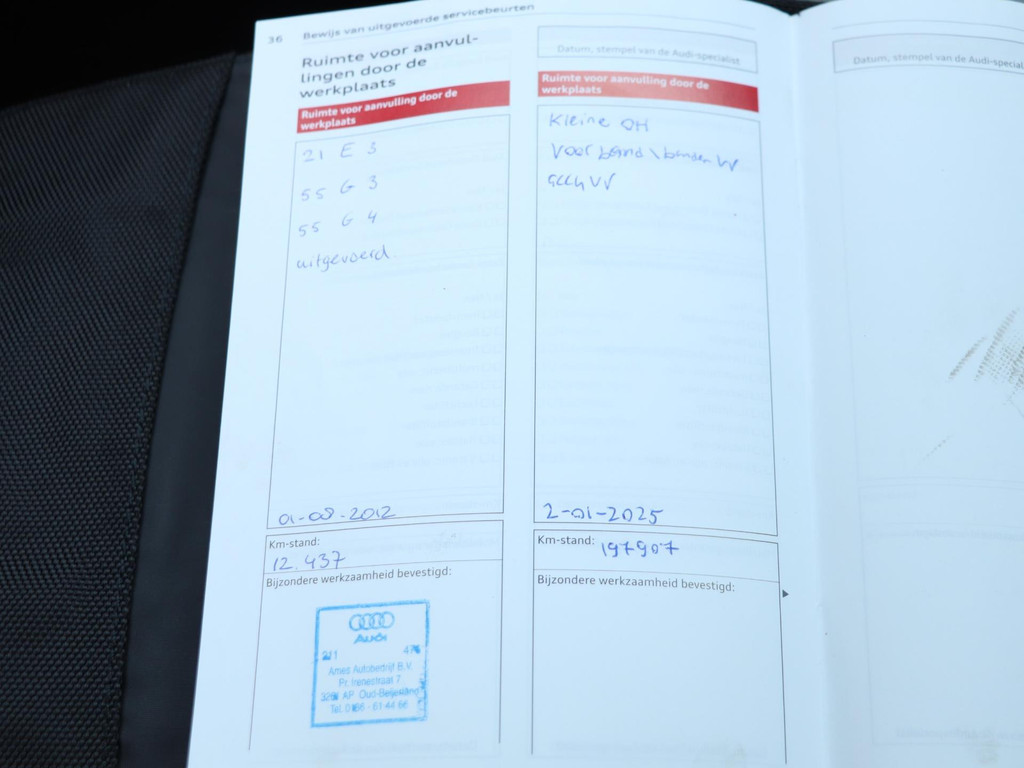 36 Bewijs van uitgevoerde servicebeurten
Ruimte voor aanvul-
lingen door de
werkplaats
Ruimte voor aanvulling door de
werkplaats
21 E 3
55 G 3
55 G 4
uitgevoerd
01-08-2012
Km-stand:
12.437
Bijzondere werkzaamheid bevestigd:
Audi
Autobedrijf B.V.
Pr. Irenestraat 7
AP Oud-Beijerland
Datum, stempel van de Audi-specialist
Ruimte voor aanvulling door de
werkplaats
Kleine OH
Voor band \ banden VV
VV
2-01-2025
Km-stand: 197907
Bijzondere werkzaamheid bevestigd:
Datum, stempel van de Audi-special